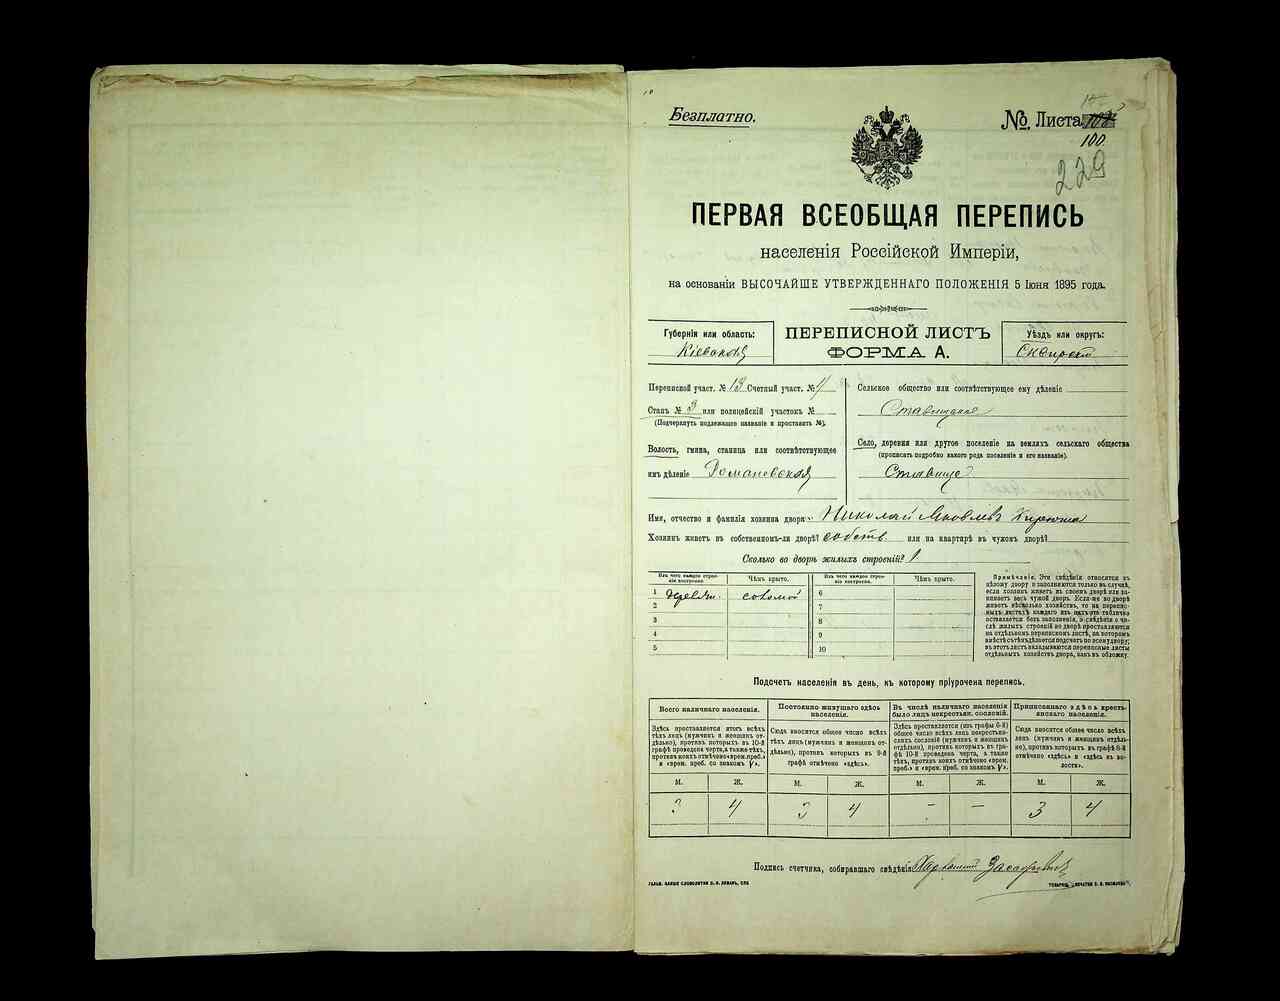 Безплатно.
№ Листа
100.
229
ПЕРВАЯ ВСЕОБЩАЯ ПЕРЕПИСЬ
населенія Россійской Имперіи,
на основаніи ВЫСОЧАЙШЕ УТВЕРЖДЕННАГО ПОЛОЖЕНІЯ 5 Іюня 1895 года.
Губернія или область:
Кіевская
ПЕРЕПИСНОЙ ЛИСТЪ
ФОРМА А.
Уѣздъ или округъ:
Сквирскій
Переписной участ. № 13 Счетный участ. №
Станъ № 3 или полицейскій участокъ №
(Подчеркнуть подлежащее названіе и проставить №).
Волость, гмина, станица или соотвѣтствующее
имъ дѣленіе Романовская
Сельское общество или соотвѣтствующее ему дѣленіе
Ставищкое
Село, деревня или другое поселеніе на земляхъ сельскаго общества
(прописать подробно какого рода поселеніе и его названіе).
Ставище
Имя, отчество и фамилія хозяина двора: Николай Яковлевъ
Хозяинъ живетъ въ собственномъ-ли дворѣ? собств. или на квартирѣ въ чужомъ дворѣ?
Сколько во дворѣ жилыхъ строеній? 1
Изъ чего каждое строеніе построено.
Чѣмъ крыто.
Изъ чего каждое строеніе построено.
Чѣмъ крыто.
1 дерев. соломой
2
3
4
5
6
7
8
9
10
Примѣчаніе. Эти свѣдѣнія относятся къ
цѣлому двору и заполняются только въ случаѣ,
если хозяинъ живетъ въ своемъ дворѣ или занимаетъ
весь чужой дворъ. Если-же во дворѣ
живетъ нѣсколько хозяйствъ, то на переписныхъ
листахъ каждаго изъ нихъ эта табличка
оставляется безъ заполненія, а свѣдѣнія о числѣ
жилыхъ строеній во дворѣ проставляются
на отдѣльномъ переписномъ листѣ, на которомъ
вмѣстѣ съ тѣмъ дѣлается подсчетъ по всему двору;
въ этотъ листъ вкладываются переписные листы
отдѣльныхъ хозяйствъ двора, какъ въ обложку.
Подсчетъ населенія въ день, къ которому пріурочена перепись.
Всего наличнаго населенія.
Здѣсь проставляется итогъ всѣхъ
тѣхъ лицъ (мужчинъ и женщинъ отдѣльно),
противъ которыхъ въ 10-й
графѣ проведена черта, а также тѣхъ,
противъ коихъ отмѣчено «врем. преб.»
и «врем. преб. со знакомъ V».
Постоянно живущаго здѣсь
населенія.
Сюда вносится общее число всѣхъ
тѣхъ лицъ (мужчинъ и женщинъ отдѣльно),
противъ которыхъ въ 9-й
графѣ отмѣчено «здѣсь».
Въ числѣ наличнаго населенія
было лицъ некрестьян. сословій.
Здѣсь проставляется (изъ графы 6-й)
общее число всѣхъ лицъ некрестьянскихъ
сословій (мужчинъ и женщинъ
отдѣльно), противъ которыхъ въ графѣ
10-й проведена черта, а также
тѣхъ, противъ коихъ отмѣчено «врем.
преб.» и «врем. преб. со знакомъ V».
Приписаннаго здѣсь крестьянскаго
населенія.
Сюда вносится общее число всѣхъ
тѣхъ лицъ (мужчинъ и женщинъ отдѣльно),
противъ которыхъ въ графѣ 8-й
отмѣчено «здѣсь» и «здѣсь въ волости».
М. Ж. М. Ж. М. Ж. М. Ж.
3 4 3 4 – – 3 4
Подпись счетчика, собиравшаго свѣдѣнія